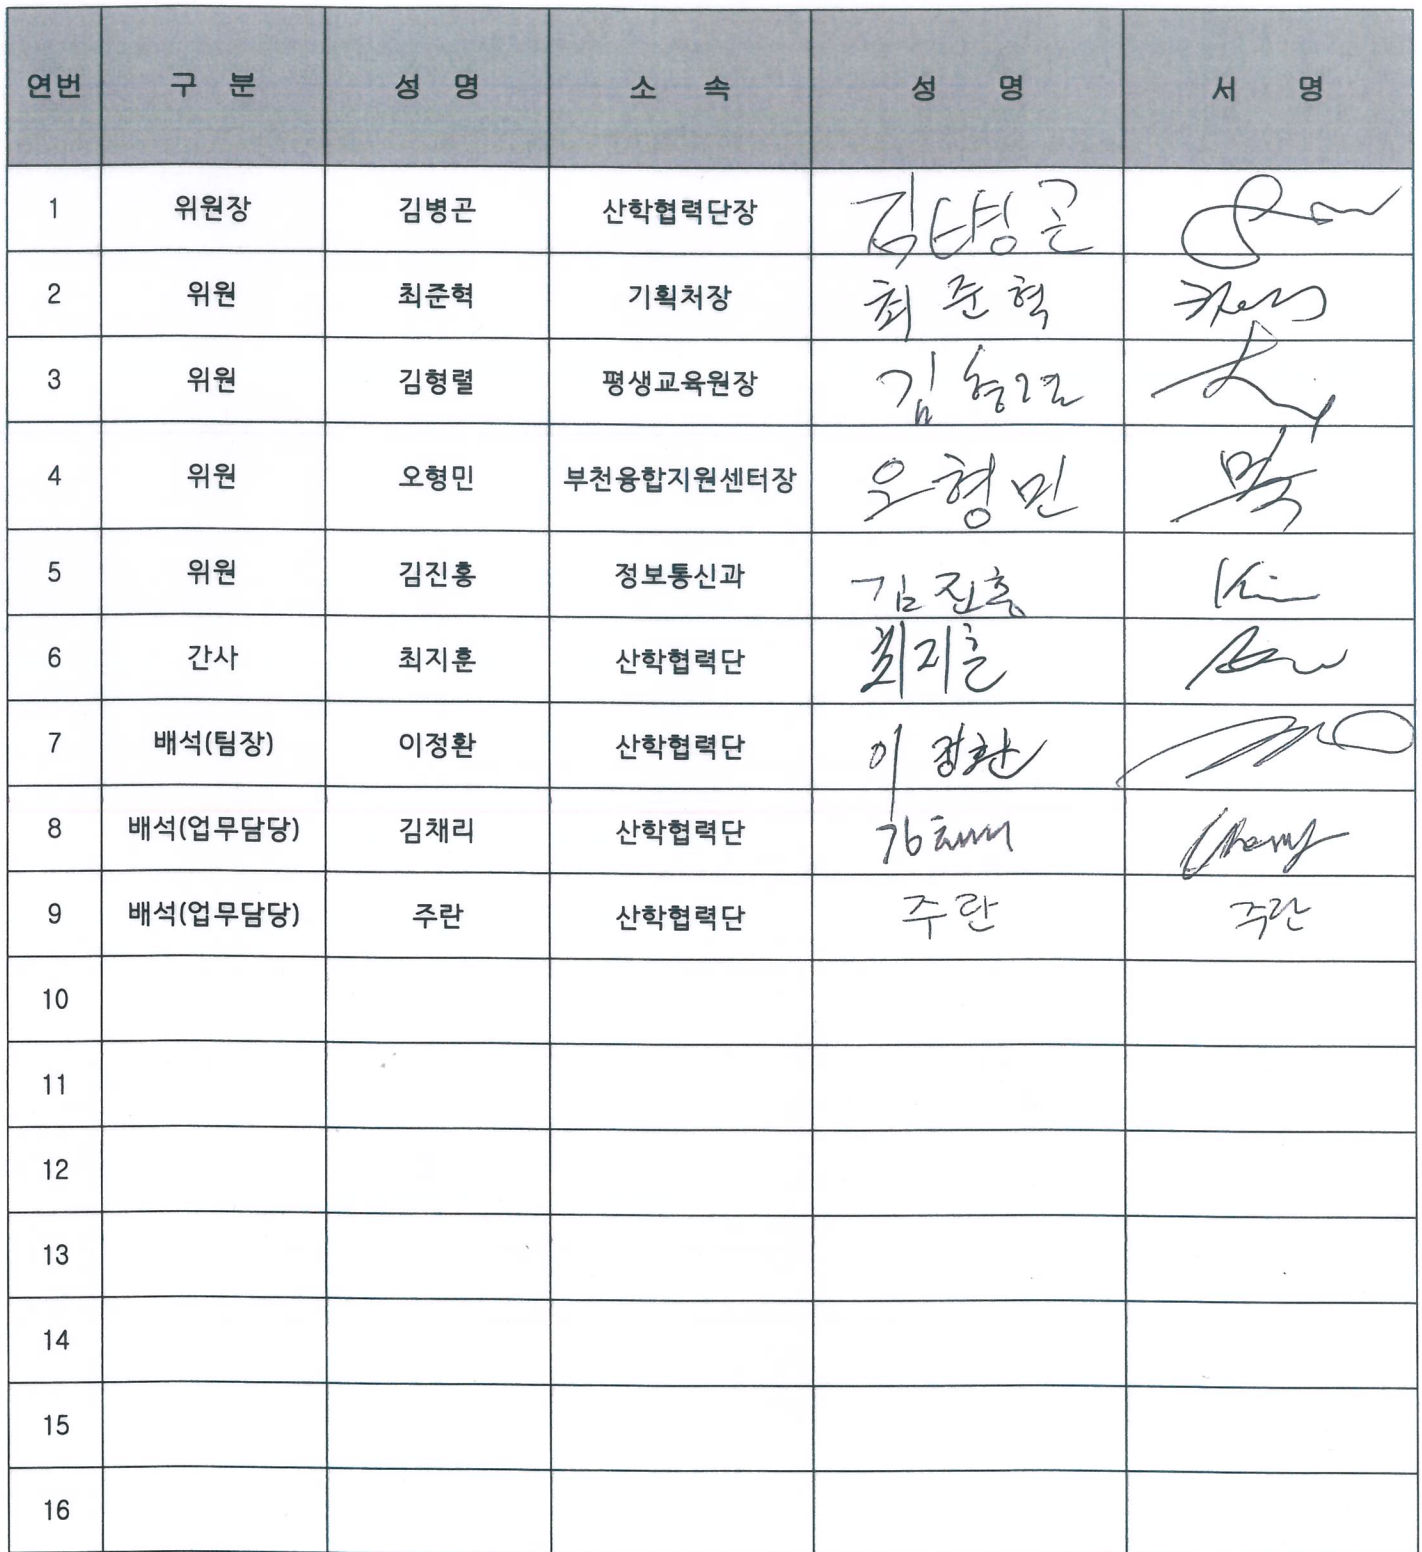 연번 구 분 성 명 소 속 성 명 서 명
1 위원장 김병곤 산학협력단장 김병곤
2 위원 최준혁 기획처장 최준혁
3 위원 김형렬 평생교육원장 김형렬
4 위원 오형민 부천융합지원센터장 오형민
5 위원 김진홍 정보통신과 김진홍 Kim
6 간사 최지훈 산학협력단 최지훈
7 배석(팀장) 이정환 산학협력단 이정환
8 배석(업무담당) 김채리 산학협력단 김채리
9 배석(업무담당) 주란 산학협력단 주란 주란
10
11
12
13
14
15
16